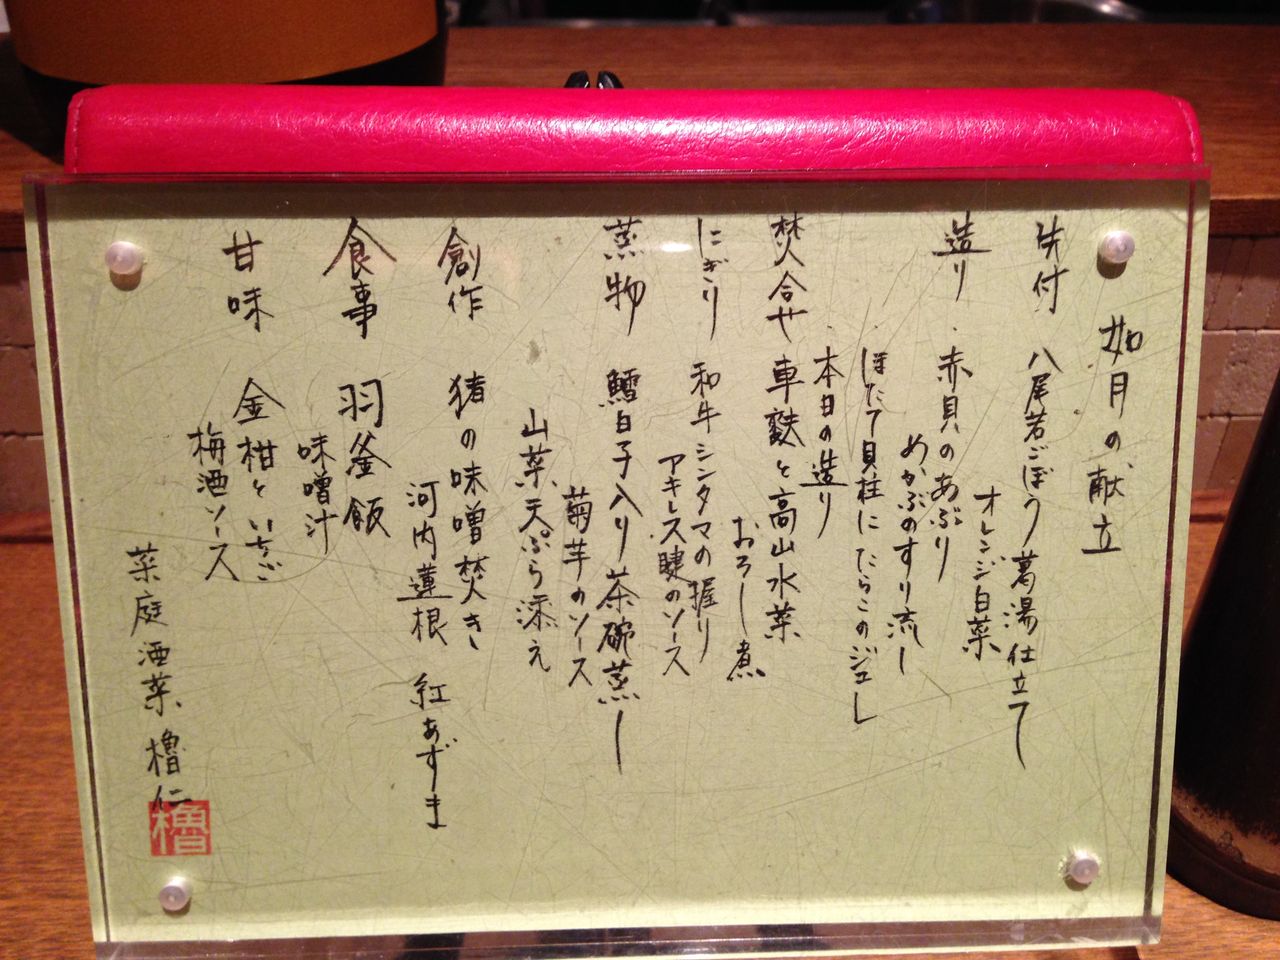 如月の献立
先付 八尾若ごぼう葛湯仕立て
オレンジ白菜
造り 赤貝のあぶり
めかぶのすり流し
ほたて貝柱にたらこのジュレ
本日の造り
焚合せ 車麩と高山水菜
おろし煮
にぎり 和牛シンタマの握り
アキレス腱のソース
蒸物 鱈白子入り茶碗蒸し
菊芋のソース
山菜天ぷら添え
創作 猪の味噌焚き
河内蓮根 紅あずま
食事 羽釜飯
味噌汁
甘味 金柑といちご
梅酒ソース
菜庭酒菜 櫓仁
櫓